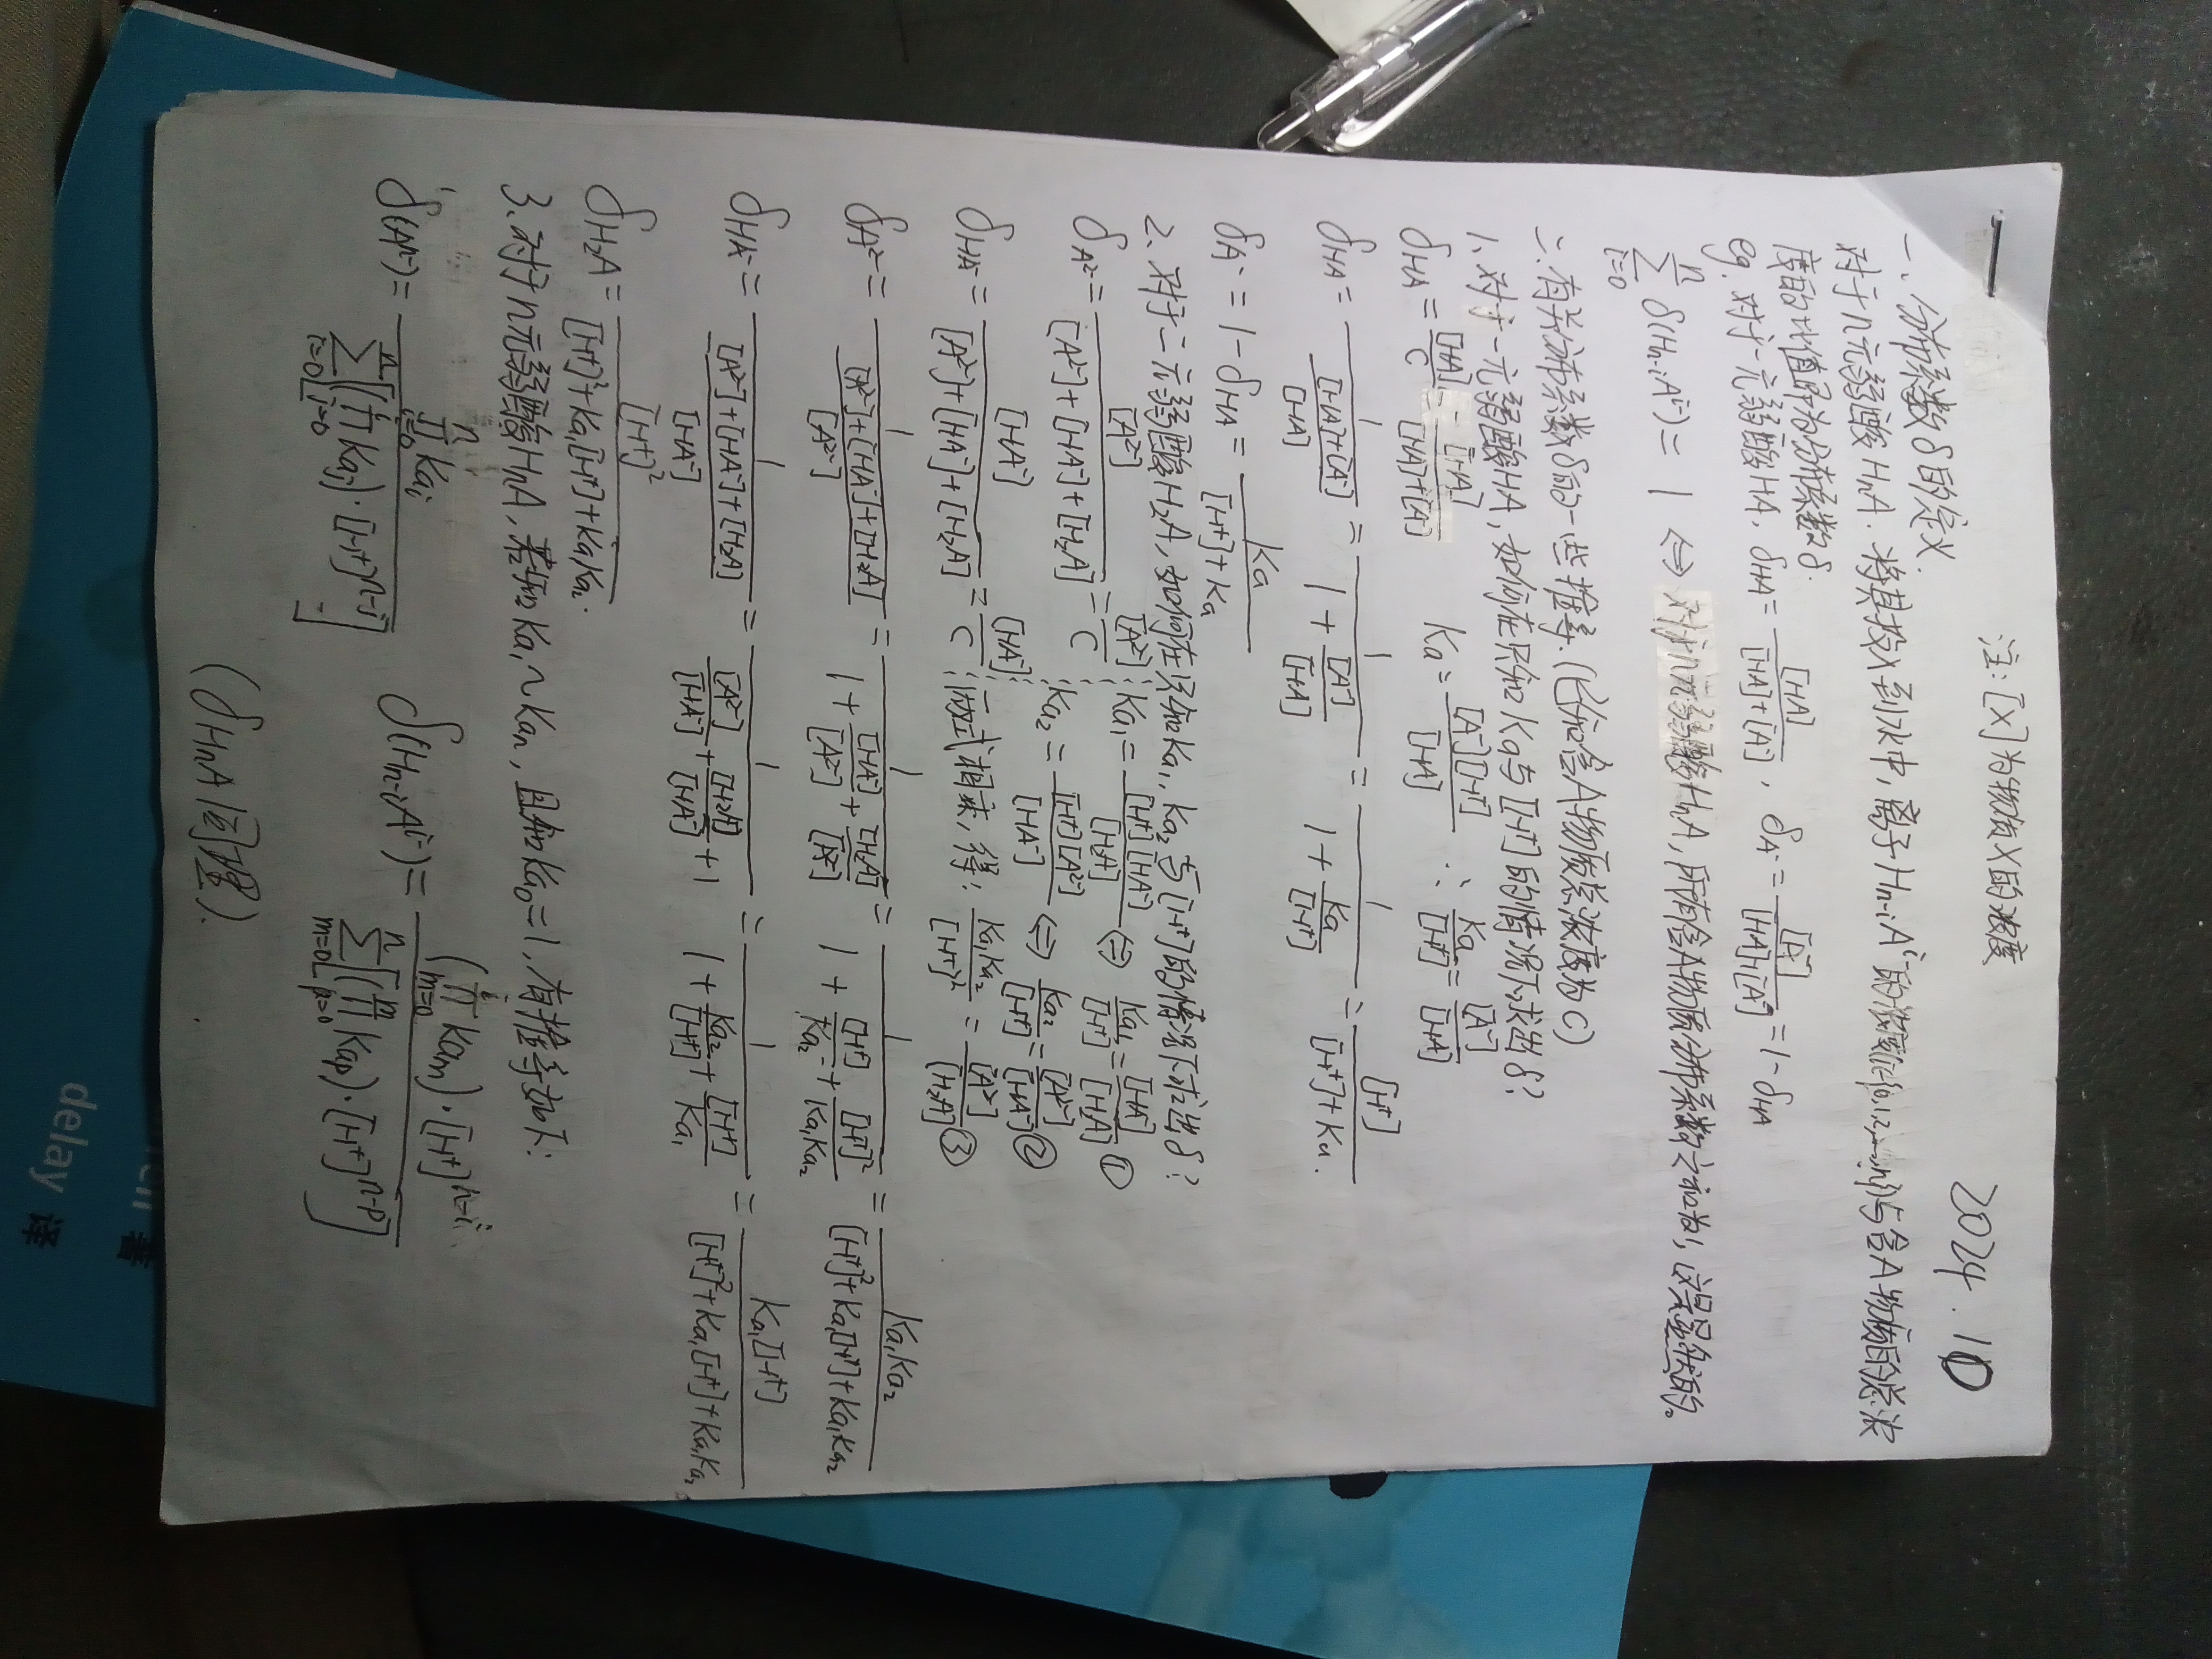 注:[X]为物质X的浓度
2024.10
一、分布系数δ的定义.
对于n元弱酸HnA.将其投入到水中,离子Hn-iA^i-的浓度(i=0,1,2,…,n)与含A物质的总浓
度的比值即为分布系数δ.
eg.对于一元弱酸HA, δHA=[HA]/([HA]+[A⁻]), δA⁻=[A⁻]/([HA]+[A⁻])=1-δHA
∑(i=0→n) δ(Hn-iA^i-)=1 ⇔ 对于n元弱酸HnA,所有含A物质分布系数之和为1,这是显然的。
二.有关分布系数δ的一些推导.(已知含A物质总浓度为C)
1.对于一元弱酸HA,如何在只知Ka与[H⁺]的情况下求出δ?
δHA=[HA]/C=[HA]/([HA]+[A⁻]) Ka=[A⁻][H⁺]/[HA] ∴Ka/[H⁺]=[A⁻]/[HA]
δHA=1/(([HA]+[A⁻])/[HA])=1/(1+[A⁻]/[HA])=1/(1+Ka/[H⁺])=[H⁺]/([H⁺]+Ka).
δA⁻=1-δHA=Ka/([H⁺]+Ka)
2.对于二元弱酸H₂A,如何在只知Ka₁,Ka₂与[H⁺]的情况下求出δ?
δA²⁻=[A²⁻]/([A²⁻]+[HA⁻]+[H₂A])=[A²⁻]/C Ka₁=[H⁺][HA⁻]/[H₂A] ⇔ Ka₁/[H⁺]=[HA⁻]/[H₂A] ①
Ka₂=[H⁺][A²⁻]/[HA⁻] ⇔ Ka₂/[H⁺]=[A²⁻]/[HA⁻] ②
δHA⁻=[HA⁻]/([A²⁻]+[HA⁻]+[H₂A])=[HA⁻]/C 两式相乘,得:Ka₁Ka₂/[H⁺]²=[A²⁻]/[H₂A] ③
δA²⁻=1/(([A²⁻]+[HA⁻]+[H₂A])/[A²⁻])=1/(1+[HA⁻]/[A²⁻]+[H₂A]/[A²⁻])=1/(1+[H⁺]/Ka₂+[H⁺]²/Ka₁Ka₂)=Ka₁Ka₂/([H⁺]²+Ka₁[H⁺]+Ka₁Ka₂)
δHA⁻=1/(([A²⁻]+[HA⁻]+[H₂A])/[HA⁻])=1/([A²⁻]/[HA⁻]+[H₂A]/[HA⁻]+1)=1/(1+Ka₂/[H⁺]+[H⁺]/Ka₁)=Ka₁[H⁺]/([H⁺]²+Ka₁[H⁺]+Ka₁Ka₂)。
δH₂A=[H⁺]²/([H⁺]²+Ka₁[H⁺]+Ka₁Ka₂).
3.对于n元弱酸HnA,若知Ka₁~Kan,且知Ka₀=1,有推导如下:
δ(A^n-)=∏(i=0→n)Kai/∑(i=0→n)[(∏(j=0→i)Kaj)·[H⁺]^(n-i)] δ(Hn-iA^i-)=(∏(m=0→i)Kam)·[H⁺]^(n-i)/∑(m=0→n)[(∏(p=0→m)Kap)·[H⁺]^(n-p)]
(δHnA同理).
delay 译
著